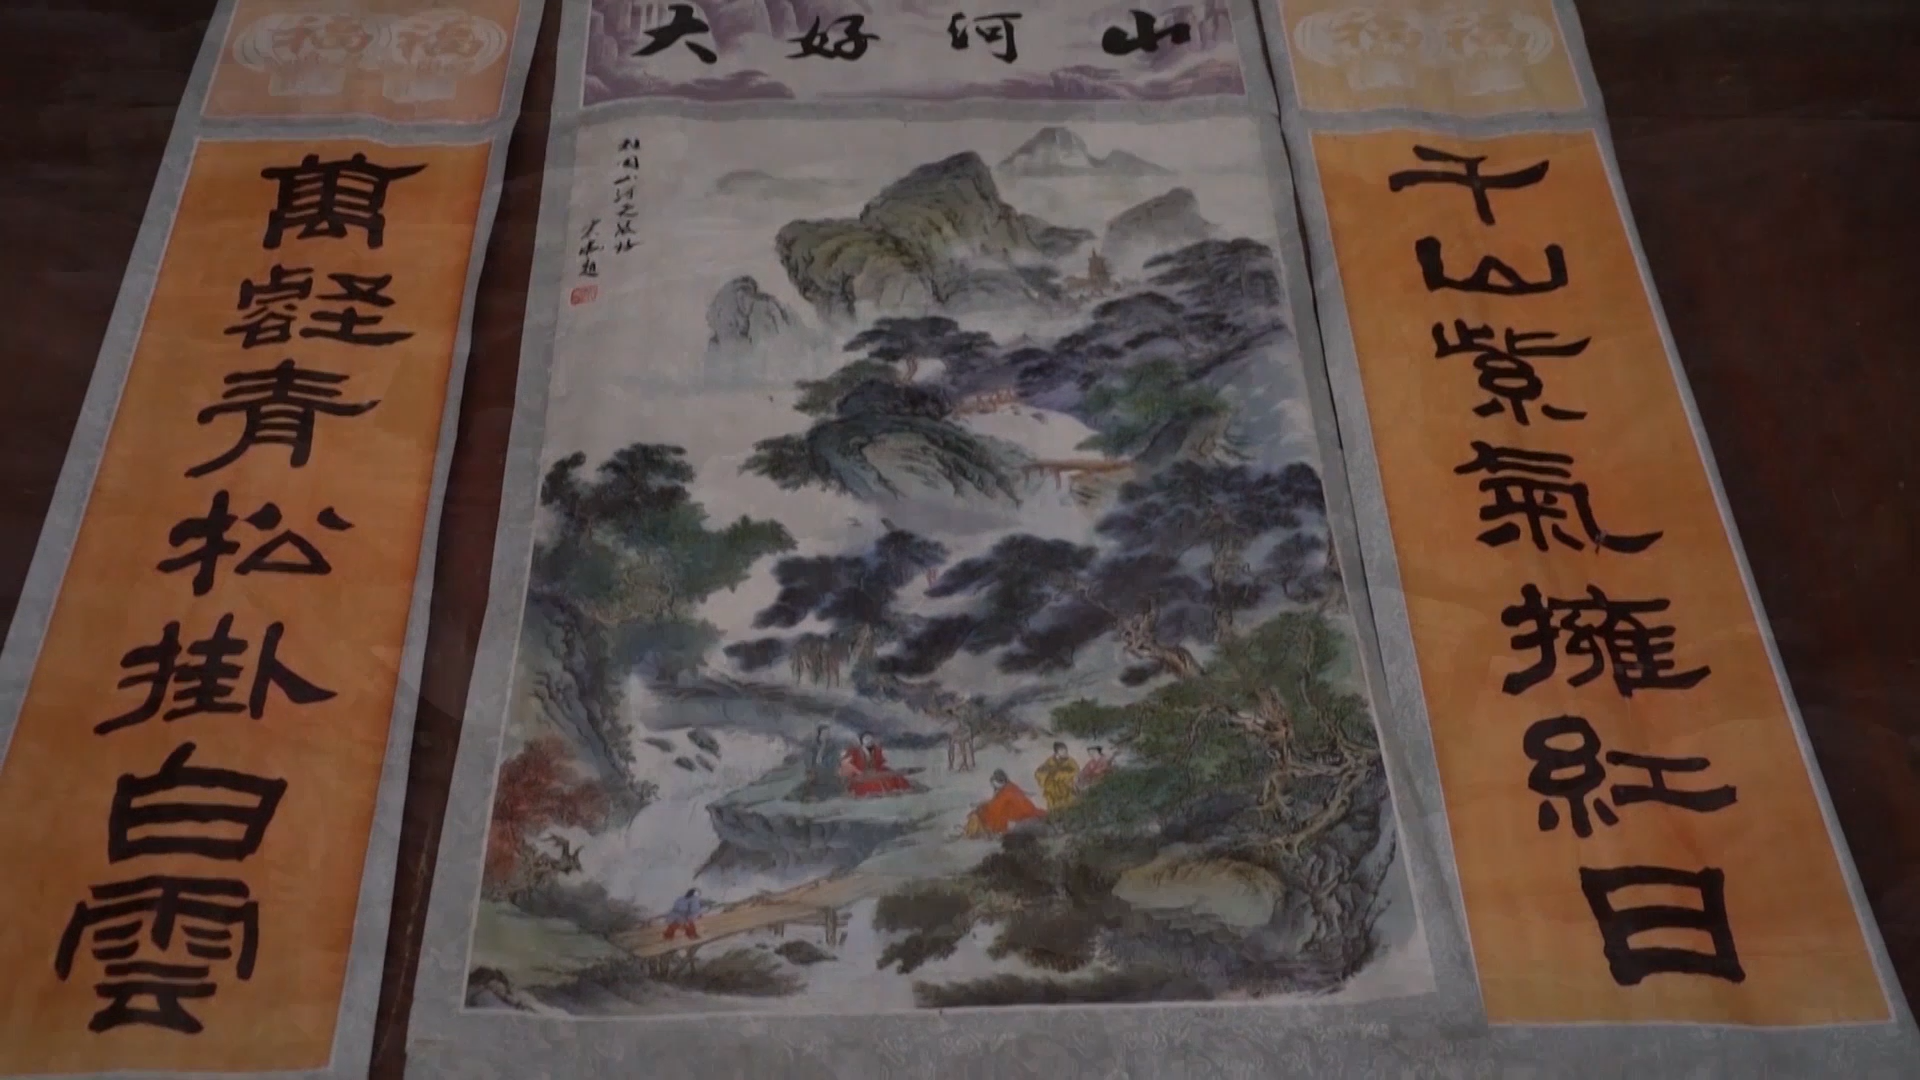 大好河山
千山紫氣擁紅日
萬壑青松掛白雲
福福
福福